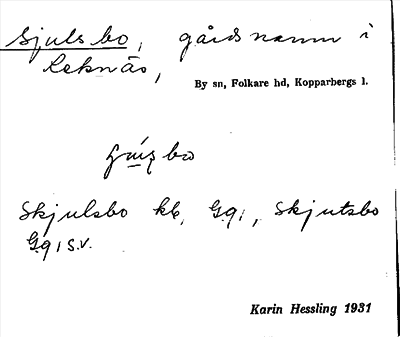 Sjulsbo, gårdsnamn i
Leknäs,
By sn, Folkare hd, Kopparbergs l.
Skjulsbo kb, Gg, Skjutsbo
Gg s.v.
Karin Hessling 1931